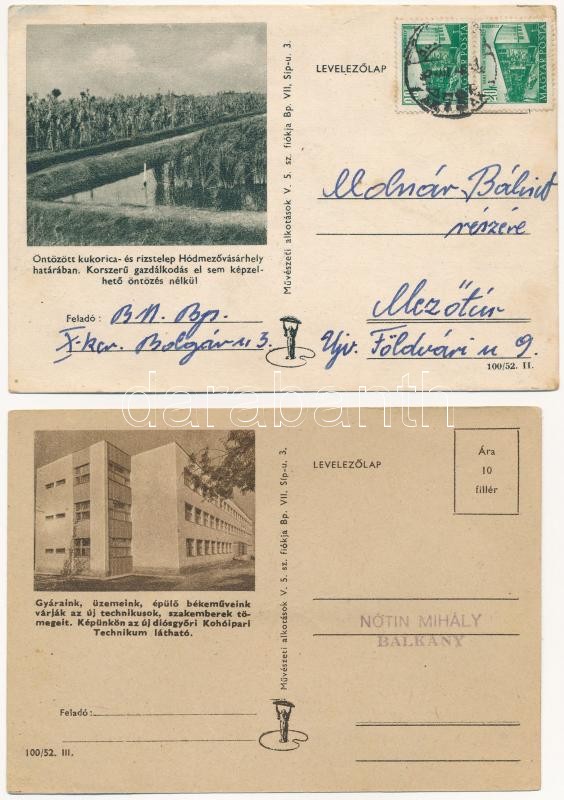 LEVELEZŐLAP
MAGYAR POSTA
Öntözött kukorica- és rizstelep Hódmezővásárhely
határában. Korszerű gazdálkodás el sem képzel-
hető öntözés nélkül
Feladó : B.N. Bp.
X. ker. Bolgár u 3.
Művészeti alkotások V. 5. sz. fiókja Bp. VII, Síp-u. 3.
Molnár Bálint
részére
Mezőtúr
Ujv. Földvári u 9.
100/52. II.
darabanth
Gyáraink, üzemeink, épülő békeműveink
várják az új technikusok, szakemberek tö-
megeit. Képünkön az új diósgyőri Kohóipari
Technikum látható.
Feladó:
100/52. III.
Művészeti alkotások V. 5. sz. fiókja Bp. VII, Síp-u. 3.
LEVELEZŐLAP
Ára
10
fillér
NÓTIN MIHÁLY
BALKÁNY